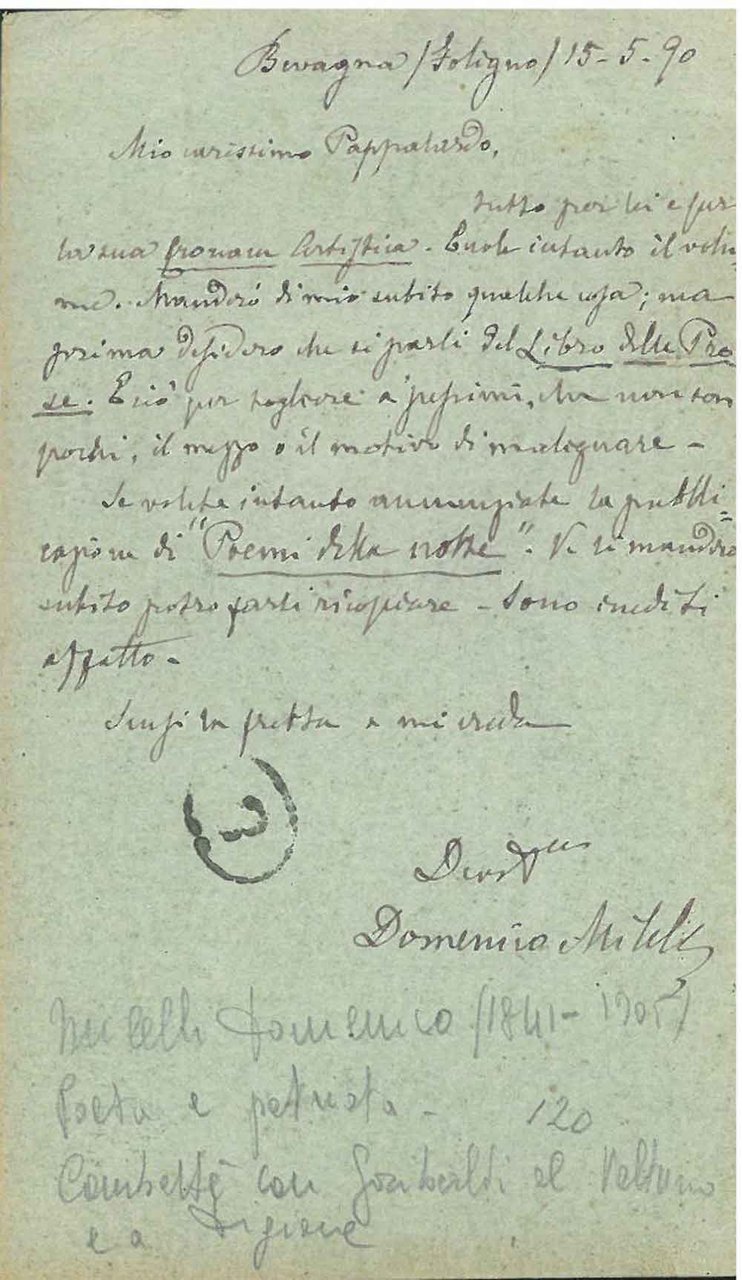 Bevagna (Foligno) 15-5-90
Mio carissimo Pappalardo,
tutto per lei e per
la sua Cronaca Artistica. Ecco le intanto il volu-
me. Manderó di mio subito qualche cosa; ma
prima desidero che si parli del Libro delle Pro
se. E ciò per togliere a' pessimi, che non son
pochi, il mezzo o il motivo di malignare -
Se volete intanto annunziate la pubbli=
cazione di "Poemi della notte". Ve li manderò
subito potrò farli ricopiare - Sono inediti
affatto -
Scusi la fretta e mi creda
3
Devot
Domenico Milelli
Milelli Domenico (1841-1905)
Poeta e patriota - 120
Combatté con Garibaldi al Volturno
e a Digione